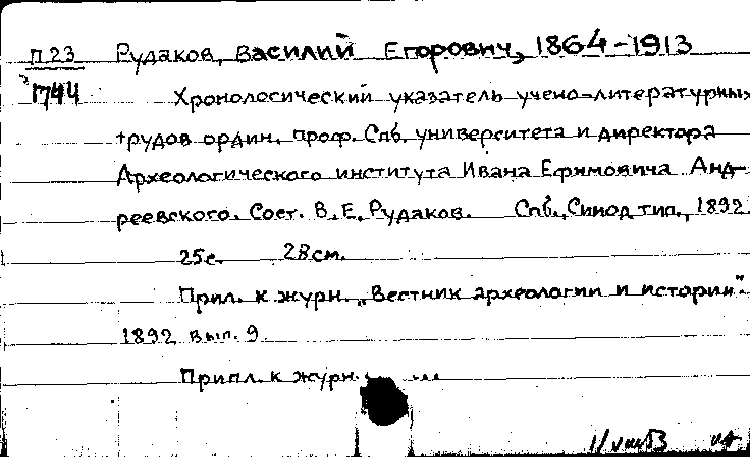 П 23 Рудаков, Василий Егорович, 1864-1913
1744 Хронологический указатель учено-литературных
трудов ордин. проф. Спб. университета и директора
Археологического института Ивана Ефимовича Анд-
реевского. Сост. В. Е. Рудаков. Спб., Синод. тип., 1892
25 с. 28 см.
Прил. к журн. „Вестник археологии и истории".
1892 вып. 9
Припл. к журн.